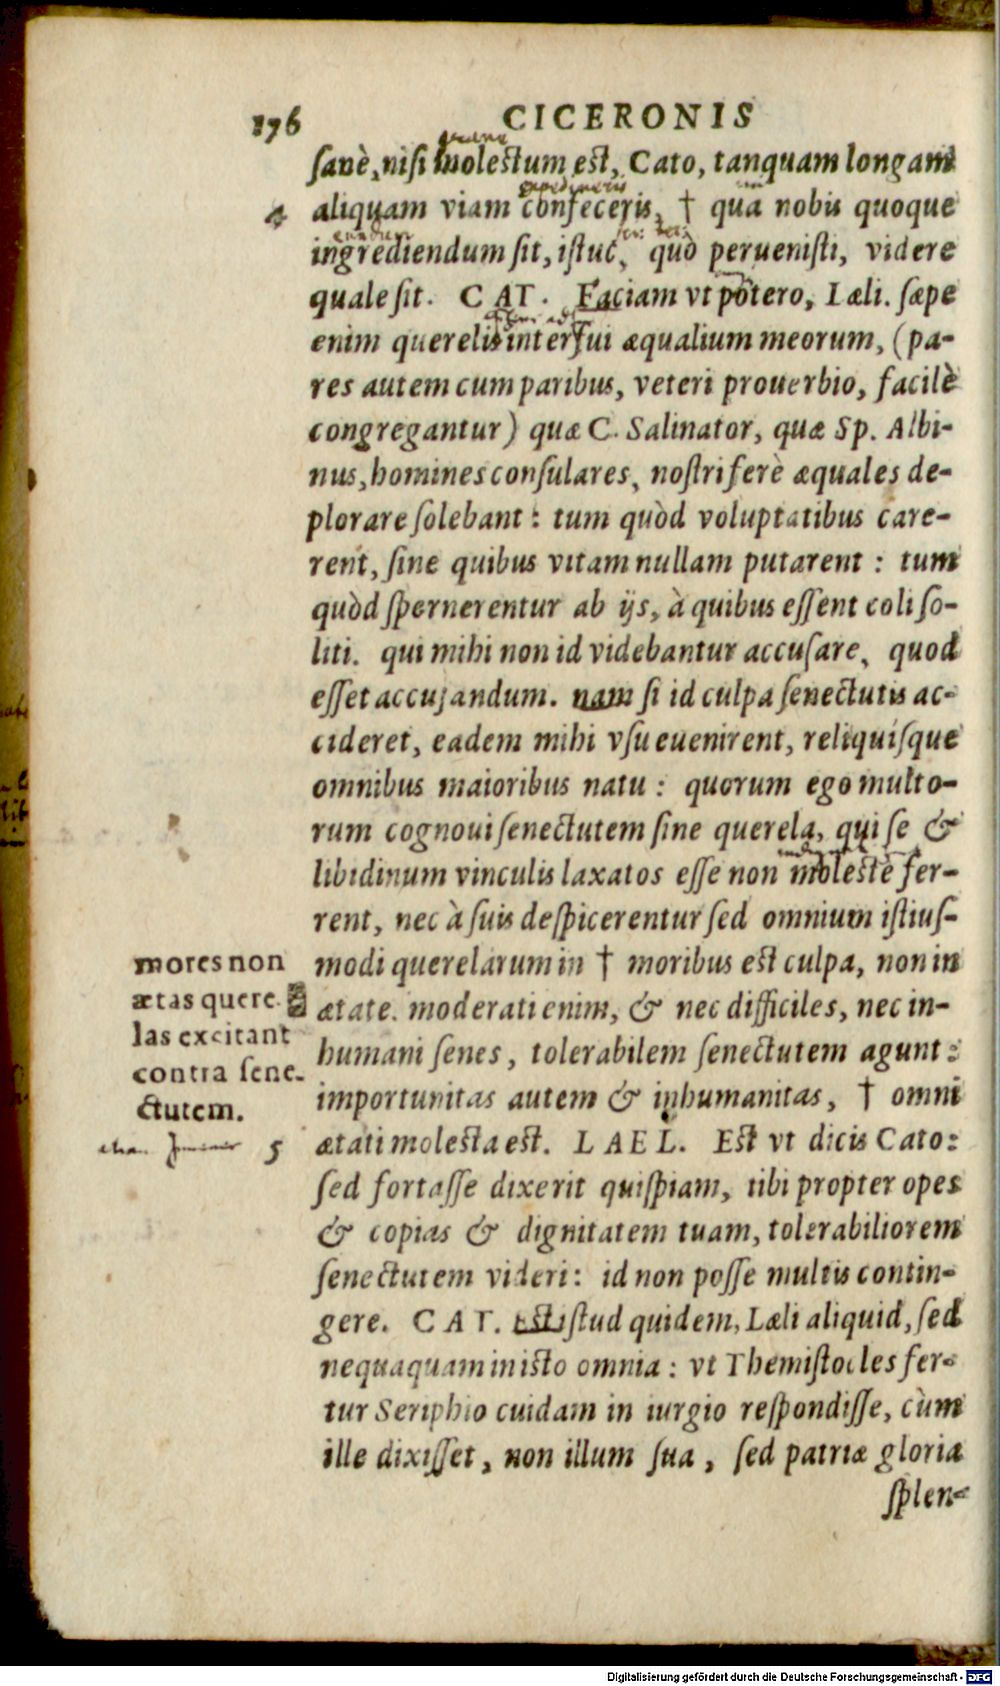 176 CICERONIS
sanè, nisi molectum est, Cato, tanquam longam
4 aliquam viam confeceris, † qua nobis quoque
ingrediendum sit, istuc, quò peruenisti, videre
quale sit. CAT. Faciam vt potero, Læli. sæpe
enim querelis interfui æqualium meorum, (pa-
res autem cum paribus, veteri prouerbio, facilè
congregantur) quæ C. Salinator, quæ Sp. Albi-
nus, homines consulares, nostri ferè æquales de-
plorare solebant: tum quòd voluptatibus care-
rent, sine quibus vitam nullam putarent: tum
quòd spernerentur ab ijs, à quibus essent coli so-
liti. qui mihi non id videbantur accusare, quod
esset accusandum. nam si id culpa senectutis ac-
cideret, eadem mihi vsu euenirent, reliquisque
omnibus maioribus natu: quorum ego multo-
rum cognoui senectutem sine querela, qui se &
libidinum vinculis laxatos esse non molestè fer-
rent, nec à suis despicerentur sed omnium istius-
modi querelarum in † moribus est culpa, non in
ætate. moderati enim, & nec difficiles, nec in-
humani senes, tolerabilem senectutem agunt:
importunitas autem & inhumanitas, † omni
5 ætati molesta est. LAEL. Est vt dicis Cato:
sed fortasse dixerit quispiam, tibi propter opes
& copias & dignitatem tuam, tolerabiliorem
senectutem videri: id non posse multis contin-
gere. CAT. Est istud quidem, Læli aliquid, sed
nequaquam in isto omnia: vt Themistocles fer-
tur Seriphio cuidam in iurgio respondisse, cùm
ille dixisset, non illum sua, sed patriæ gloria
splen-
mores non
ætas quere-
las excitant
contra sene-
ctutem.
Digitalisierung gefördert durch die Deutsche Forschungsgemeinschaft - DFG